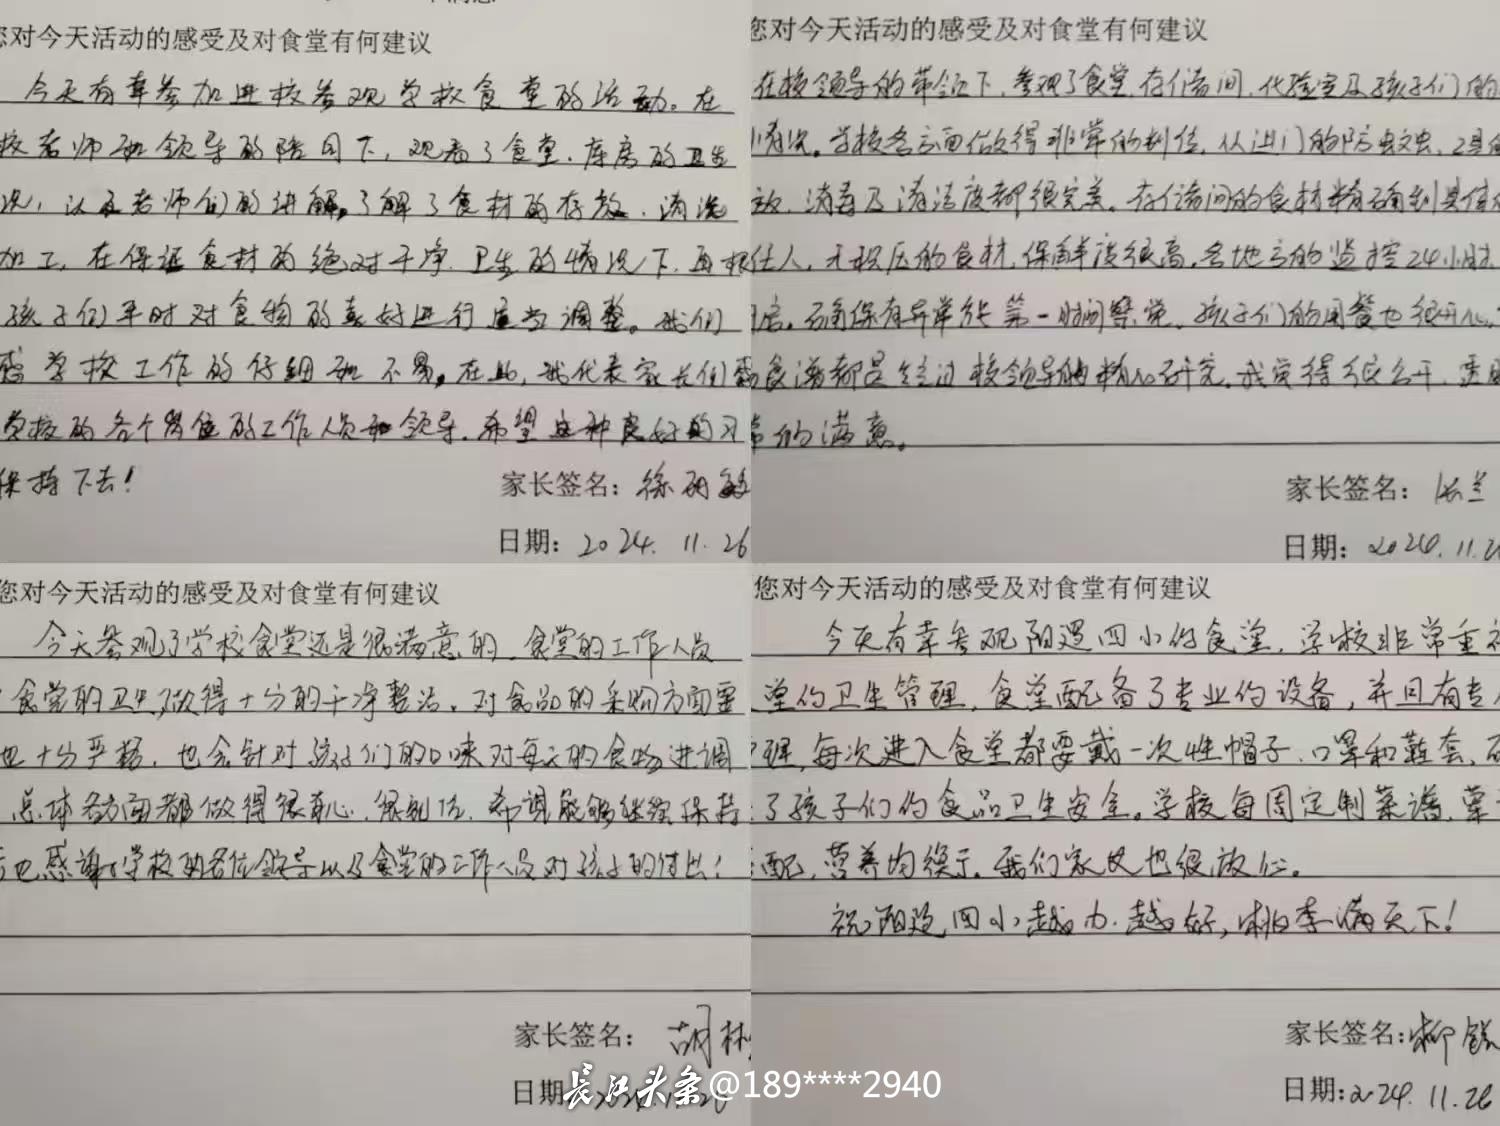 您对今天活动的感受及对食堂有何建议
今天有幸参加进校参观学校食堂的活动。在
校老师和领导的陪同下,观看了食堂、库房的卫生
况,以及老师们的讲解,了解了食材的存放、清洗
加工,在保证食材的绝对干净、卫生的情况下,再根
孩子们平时对食物的喜好进行适当调整。我们
感学校工作的仔细和不易。在此,我代表家长们感
学校的各个岗位的工作人员和领导。希望这种良好的习
保持下去!
家长签名:徐
日期:2024.11.26
您对今天活动的感受及对食堂有何建议
在校领导的带领下,参观了食堂,存储间,化验室及孩子们的
情况。学校各方面做得非常的到位,从进门的防蚊虫,
放,消毒及清洁度都很完美。存储间的食材精确到具体
任人,无积压的食材,保鲜度很高,各地方的监控24小时
启。确保有异常能第一时间察觉。孩子们的用餐也很开心,
食谱都是经过校领导的精心研究。我觉得很公开,透明
常的满意。
家长签名:
日期:2024.11.26
您对今天活动的感受及对食堂有何建议
今天参观了学校食堂还是很满意的,食堂的工作人员
食堂的卫生做得十分的干净整洁。对食品的采购方面要
也十分严格,也会针对孩子们的口味对每天的食物进调
总体各方面都做得很有心,很到位,希望能够继续保持
也感谢学校的各位领导以及食堂的工作人员对孩子的付出!
家长签名:胡
日期:
您对今天活动的感受及对食堂有何建议
今天有幸参观阳逻四小的食堂,学校非常重视
堂的卫生管理,食堂配备了专业的设备,并且有专
理,每次进入食堂都要戴一次性帽子、口罩和鞋套,
了孩子们的食品卫生安全。学校每周定制菜谱,荤
配,营养均衡。我们家长也很放心。
祝阳逻四小越办越好,桃李满天下!
家长签名:柳
日期:2024.11.26
长江头条@189****2940